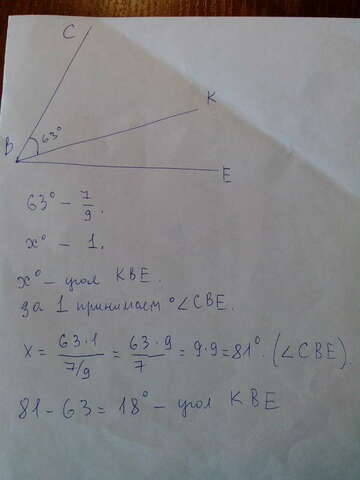 C
K
63°
B
E
63° – 7/9.
x° – 1.
x° – угол KBE.
за 1 принимаем °∠CBE.
x = 63·1 / 7/9 = 63·9 / 7 = 9·9 = 81°. (∠CBE).
81 – 63 = 18° – угол KBE